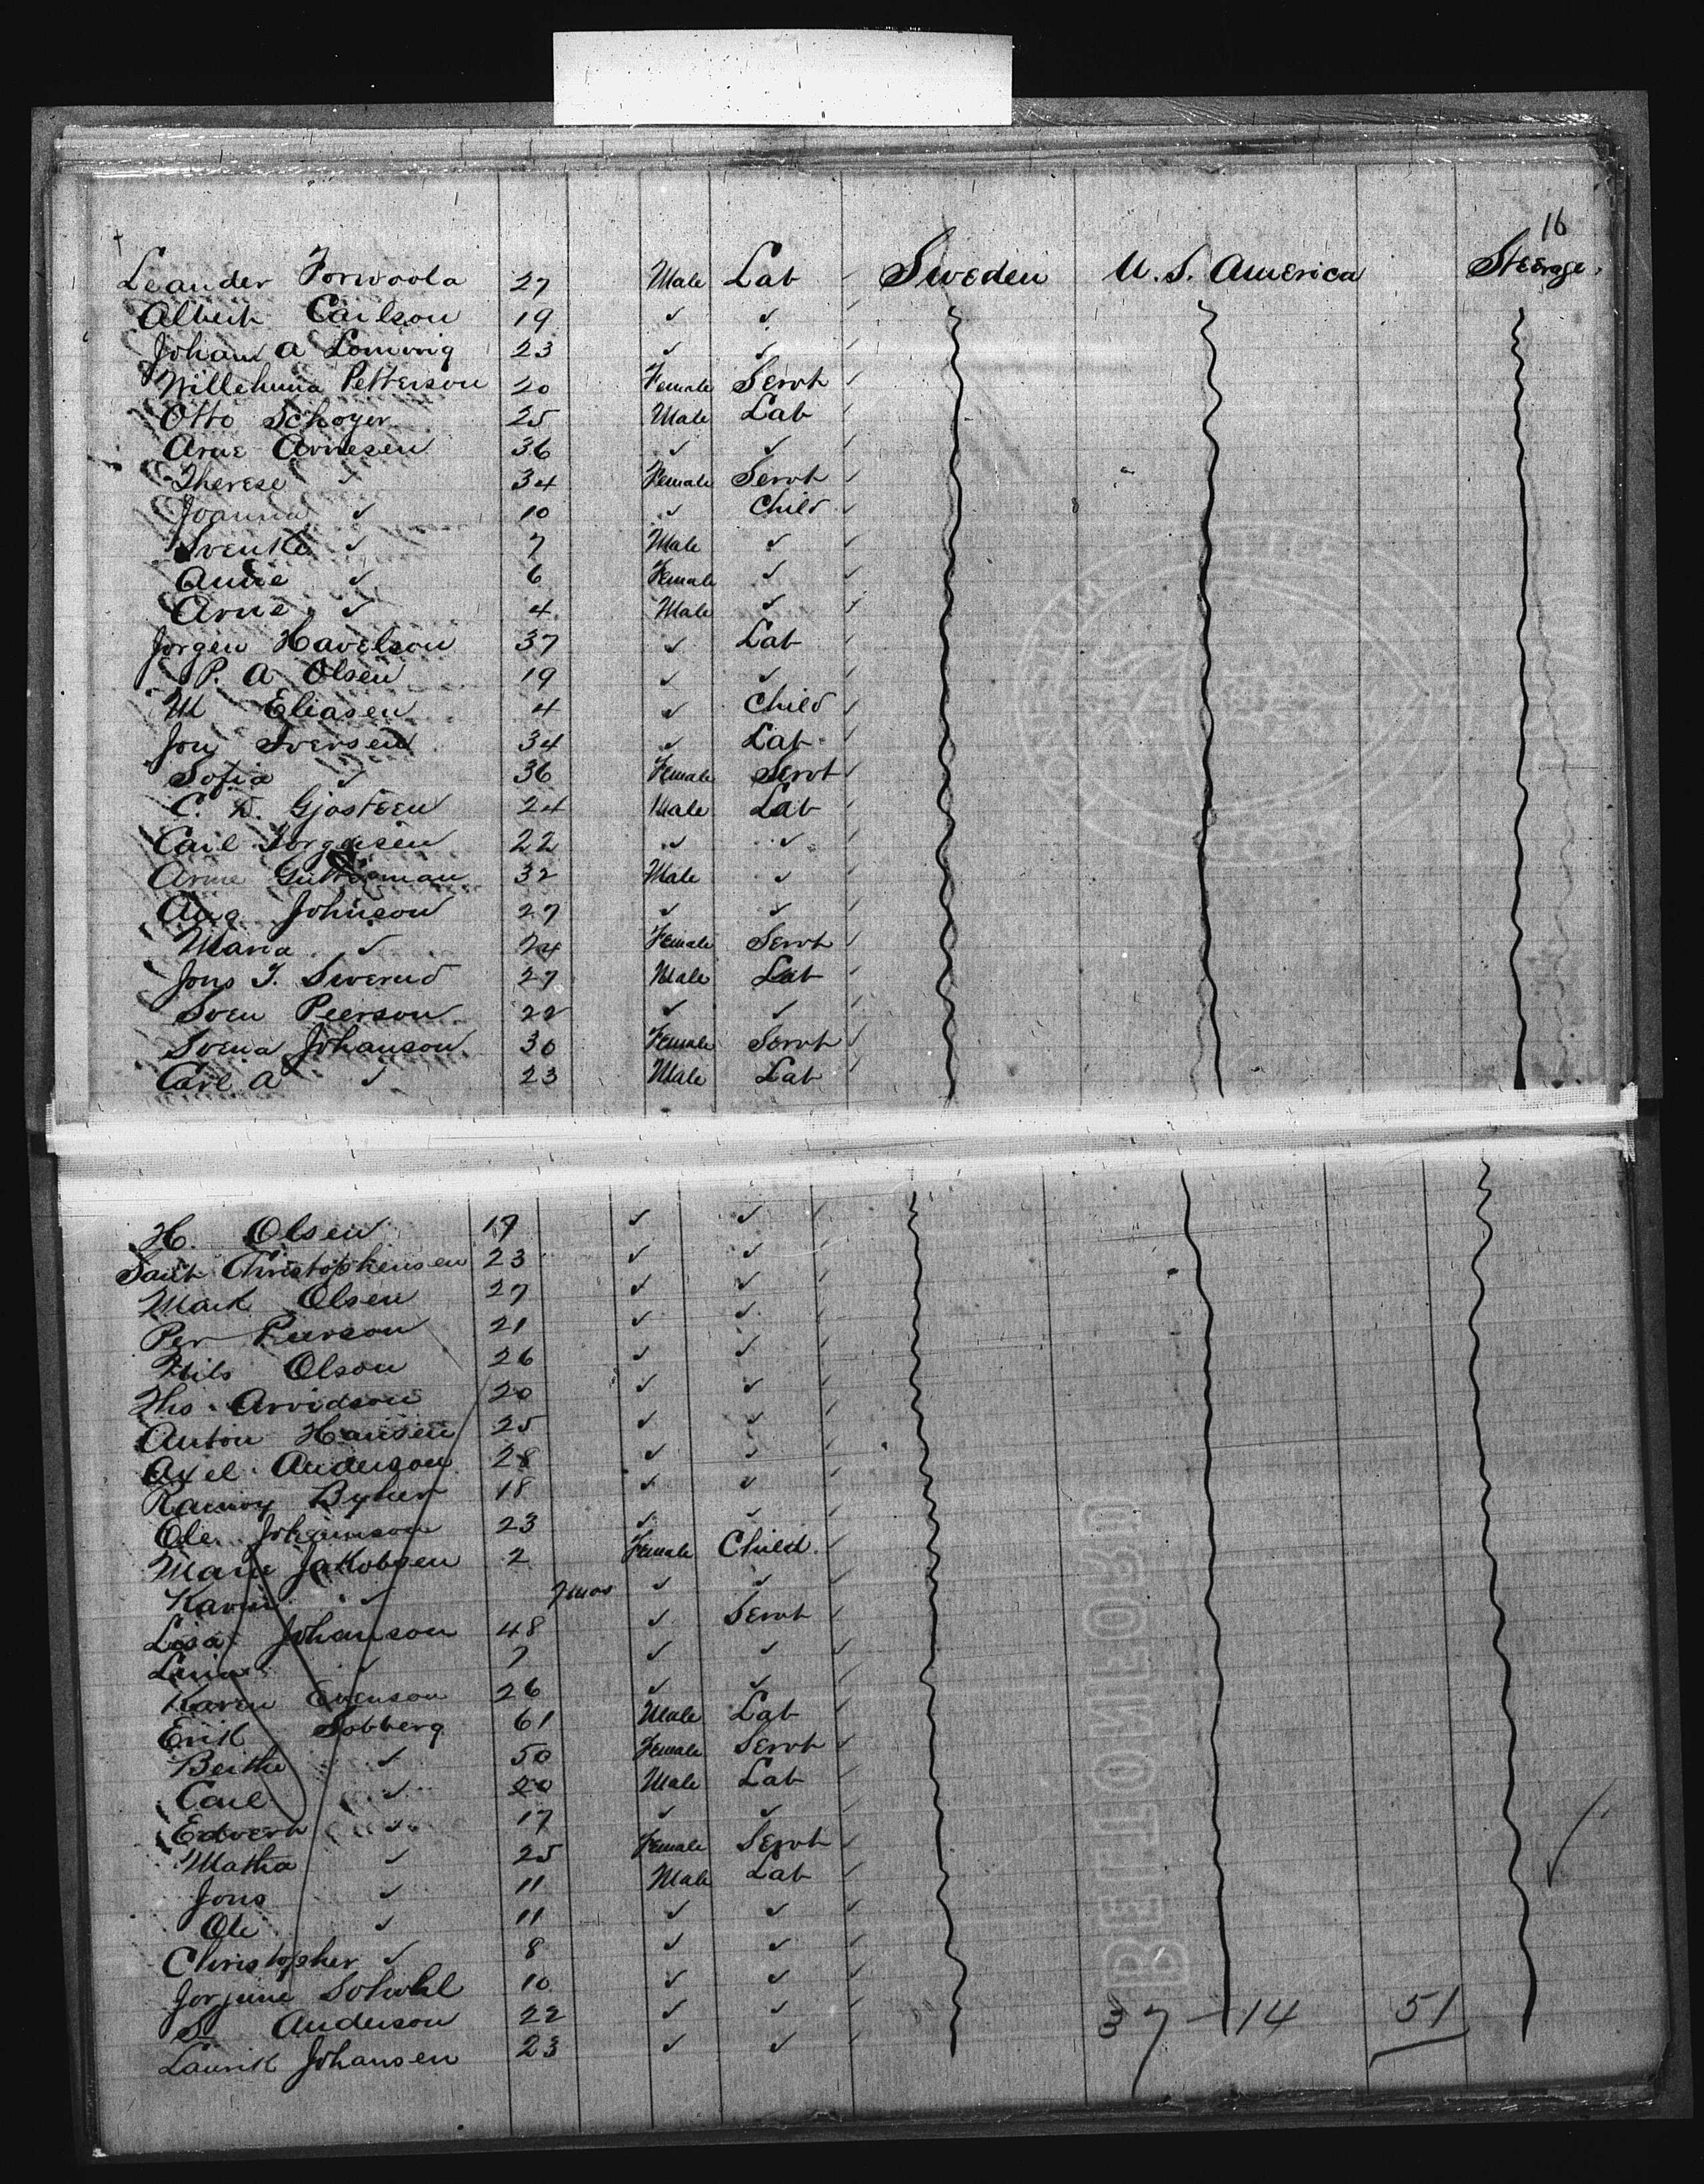 16
Leander Forwoola 27 Male Lab ✓ Sweden U.S. America Steerage
Albert Carlson 19 ✓ ✓ ✓
Johann A 23 ✓ ✓ ✓
Petterson 20 Female Servt ✓
Otto Schoyer 25 Male Lab ✓
Arne Arnesen 36 ✓ ✓ ✓
Therese ✓ 34 Female Servt ✓
Joanna ✓ 10 ✓ Child ✓
Svenke ✓ 7 Male ✓ ✓
Annie ✓ 6 Female ✓ ✓
Arne ✓ 4 Male ✓ ✓
Jorgen Havelson 37 ✓ Lab ✓
P. A Olsen 19 ✓ ✓ ✓
M Eliasen 4 ✓ Child ✓
Jon Iversen 34 ✓ Lab ✓
Sofia ✓ 36 Female Servt ✓
C. D. Gjosteen 24 Male Lab ✓
Carl Jorgensen 22 ✓ ✓ ✓
Arne 32 Male ✓ ✓
Aug Johnson 27 ✓ ✓ ✓
Maria ✓ 24 Female Servt ✓
Jons J. Sverud 27 Male Lab ✓
Sven Peerson 22 ✓ ✓ ✓
Svena Johanson 30 Female Servt ✓
Carl A ✓ 23 Male Lab ✓
H. Olsen 19 ✓ ✓ ✓
Christophensen 23 ✓ ✓ ✓
Mark Olsen 27 ✓ ✓ ✓
Per Peerson 21 ✓ ✓ ✓
Nils Olson 26 ✓ ✓ ✓
Ths Arvidson 20 ✓ ✓ ✓
Anton Hansen 25 ✓ ✓ ✓
Axel Anderson 28 ✓ ✓ ✓
18 ✓ ✓ ✓
Ole Johannson 23 ✓ ✓ ✓
Marie Jakobsen 2 Female Child ✓
Karin ✓ 7 mos ✓ ✓ ✓
Lisa Johanson 48 ✓ Servt ✓
Lina ✓ 7 ✓ ✓ ✓
Karen Evenson 26 ✓ ✓ ✓
Erik Sobberg 61 Male Lab ✓
Berthe ✓ 50 Female Servt ✓
Carl ✓ 20 Male Lab ✓
Edvert ✓ 17 ✓ ✓ ✓
Matha ✓ 25 Female Servt ✓
Jons ✓ 11 Male Lab ✓
Ole ✓ 11 ✓ ✓ ✓
Christopher ✓ 8 ✓ ✓ ✓
10 ✓ ✓ ✓
S Anderson 22 ✓ ✓ ✓
Laurik Johansen 23 ✓ ✓ ✓
37 - 14 51